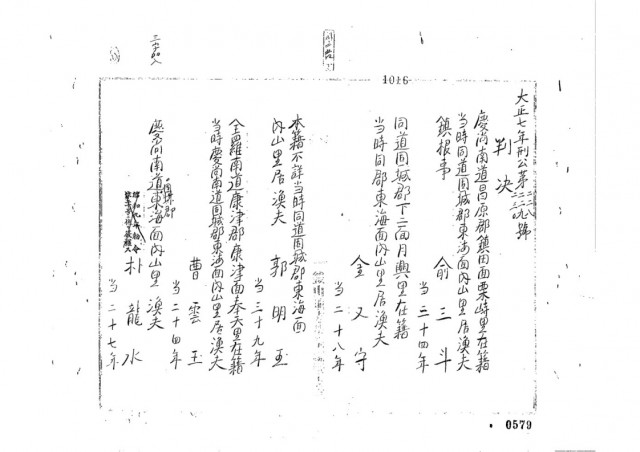 1016
大正七年刑公第二二八 二二九號
判決
慶尚南道昌原郡鎮田面栗峙里在籍
当時同道固城郡東海面內山里居漁夫
鎮根事 俞三斗
当三十四年
同道固城郡下二面月興里在籍
当時同郡東海面內山里居漁夫
金又守
当二十八年
本籍不詳当時同道固城郡東海面
內山里居漁夫 郭明玉
当三十九年
全羅南道康津郡康津面奉天里在籍
当時慶尚南道固城郡東海面內山里居漁夫
曹雲玉
当二十四年
固城郡
慶尚南道東海面內山里 漁夫
朴龍水
当二十七年
0579